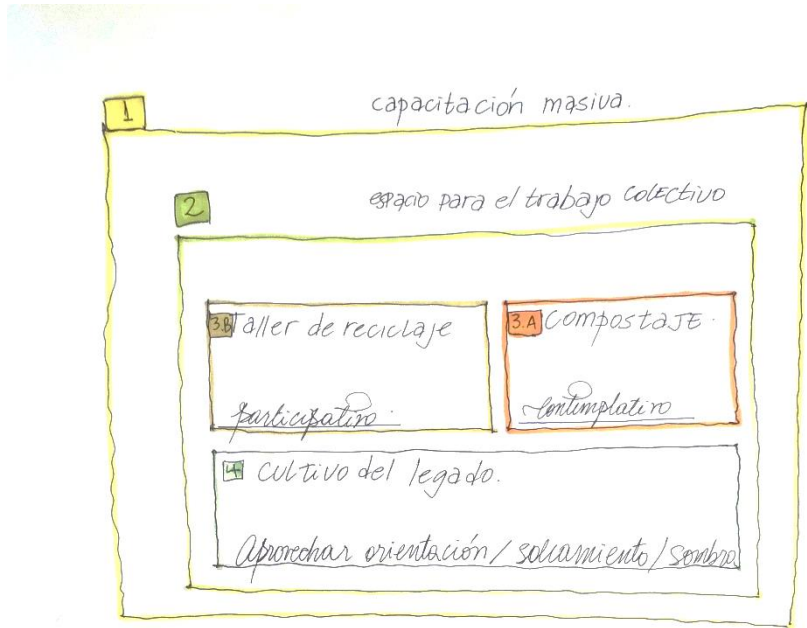 1
capacitación masiva.
2
espacio para el trabajo colectivo
3.B Taller de reciclaje
participativo.
3.A compostaje.
contemplativo
4 cultivo del legado.
Aprovechar orientación / soleamiento / sombra